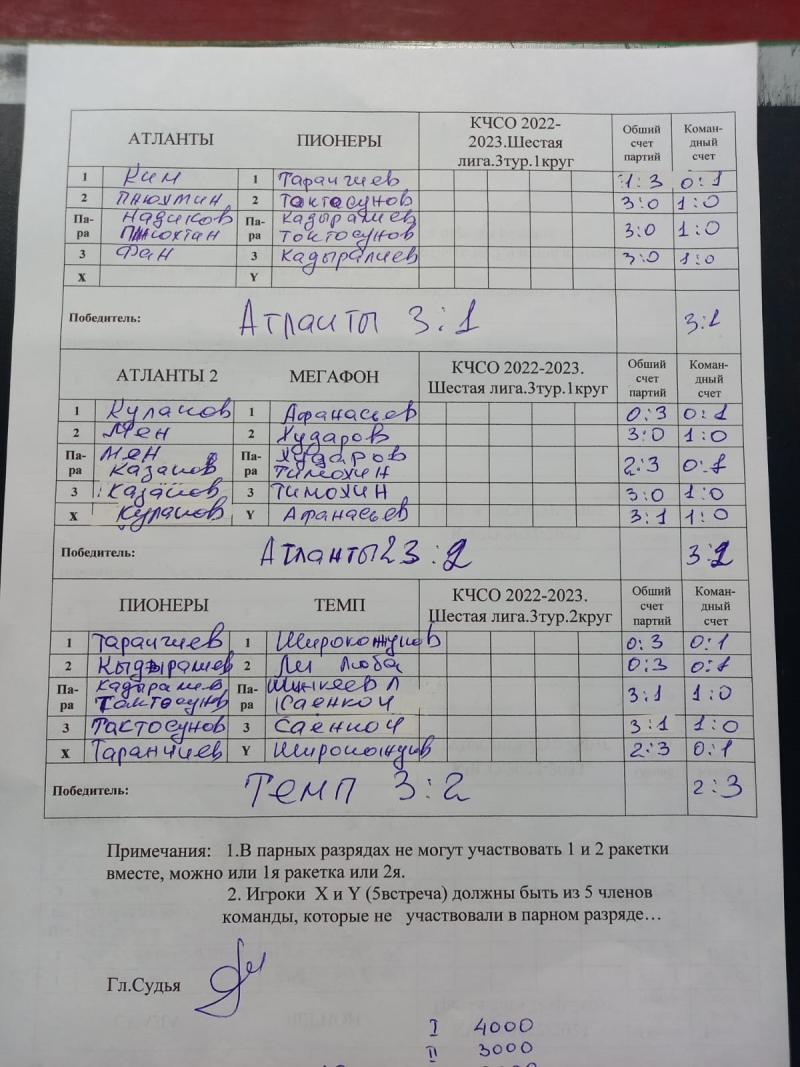 АТЛАНТЫ ПИОНЕРЫ КЧСО 2022-2023.Шестая лига.3тур.1круг Обший счет партий Коман-дный счет
1 Ким 1 Таранчиев 1:3 0:1
2 Плюхтин 2 Токтосунов 3:0 1:0
Па-ра Надиков Кадыралиев
Плюхтин Па-ра Токтосунов 3:0 1:0
3 Фан 3 Кадыралиев 3:0 1:0
X Y
Победитель: Атланты 3:1 3:1
АТЛАНТЫ 2 МЕГАФОН КЧСО 2022-2023. Шестая лига.3тур.1круг Обший счет партий Коман-дный счет
1 Кулаков 1 Афанасьев 0:3 0:1
2 Мен 2 Хударов 3:0 1:0
Па-ра Мен Па-ра Хударов 2:3 0:1
Казаков Тимохин
3 Казаков 3 Тимохин 3:0 1:0
X Кулаков Y Афанасьев 3:1 1:0
Победитель: Атланты2 3:2 3:2
ПИОНЕРЫ ТЕМП КЧСО 2022-2023. Шестая лига.3тур.2круг Обший счет партий Коман-дный счет
1 Таранчиев 1 0:3 0:1
2 Кыдыралиев 2 Ли Люба 0:3 0:1
Па-ра Кадыралиев Па-ра Шыкеев Л 3:1 1:0
Токтосунов Саенко Ч
3 Тактосунов 3 Саенко Ч 3:1 1:0
X Таранчиев Y 2:3 0:1
Победитель: Темп 3:2 2:3
Примечания: 1.В парных разрядах не могут участвовать 1 и 2 ракетки
вместе, можно или 1я ракетка или 2я.
2. Игроки X и Y (5встреча) должны быть из 5 членов
команды, которые не участвовали в парном разряде…
Гл.Судья
I 4000
II 3000